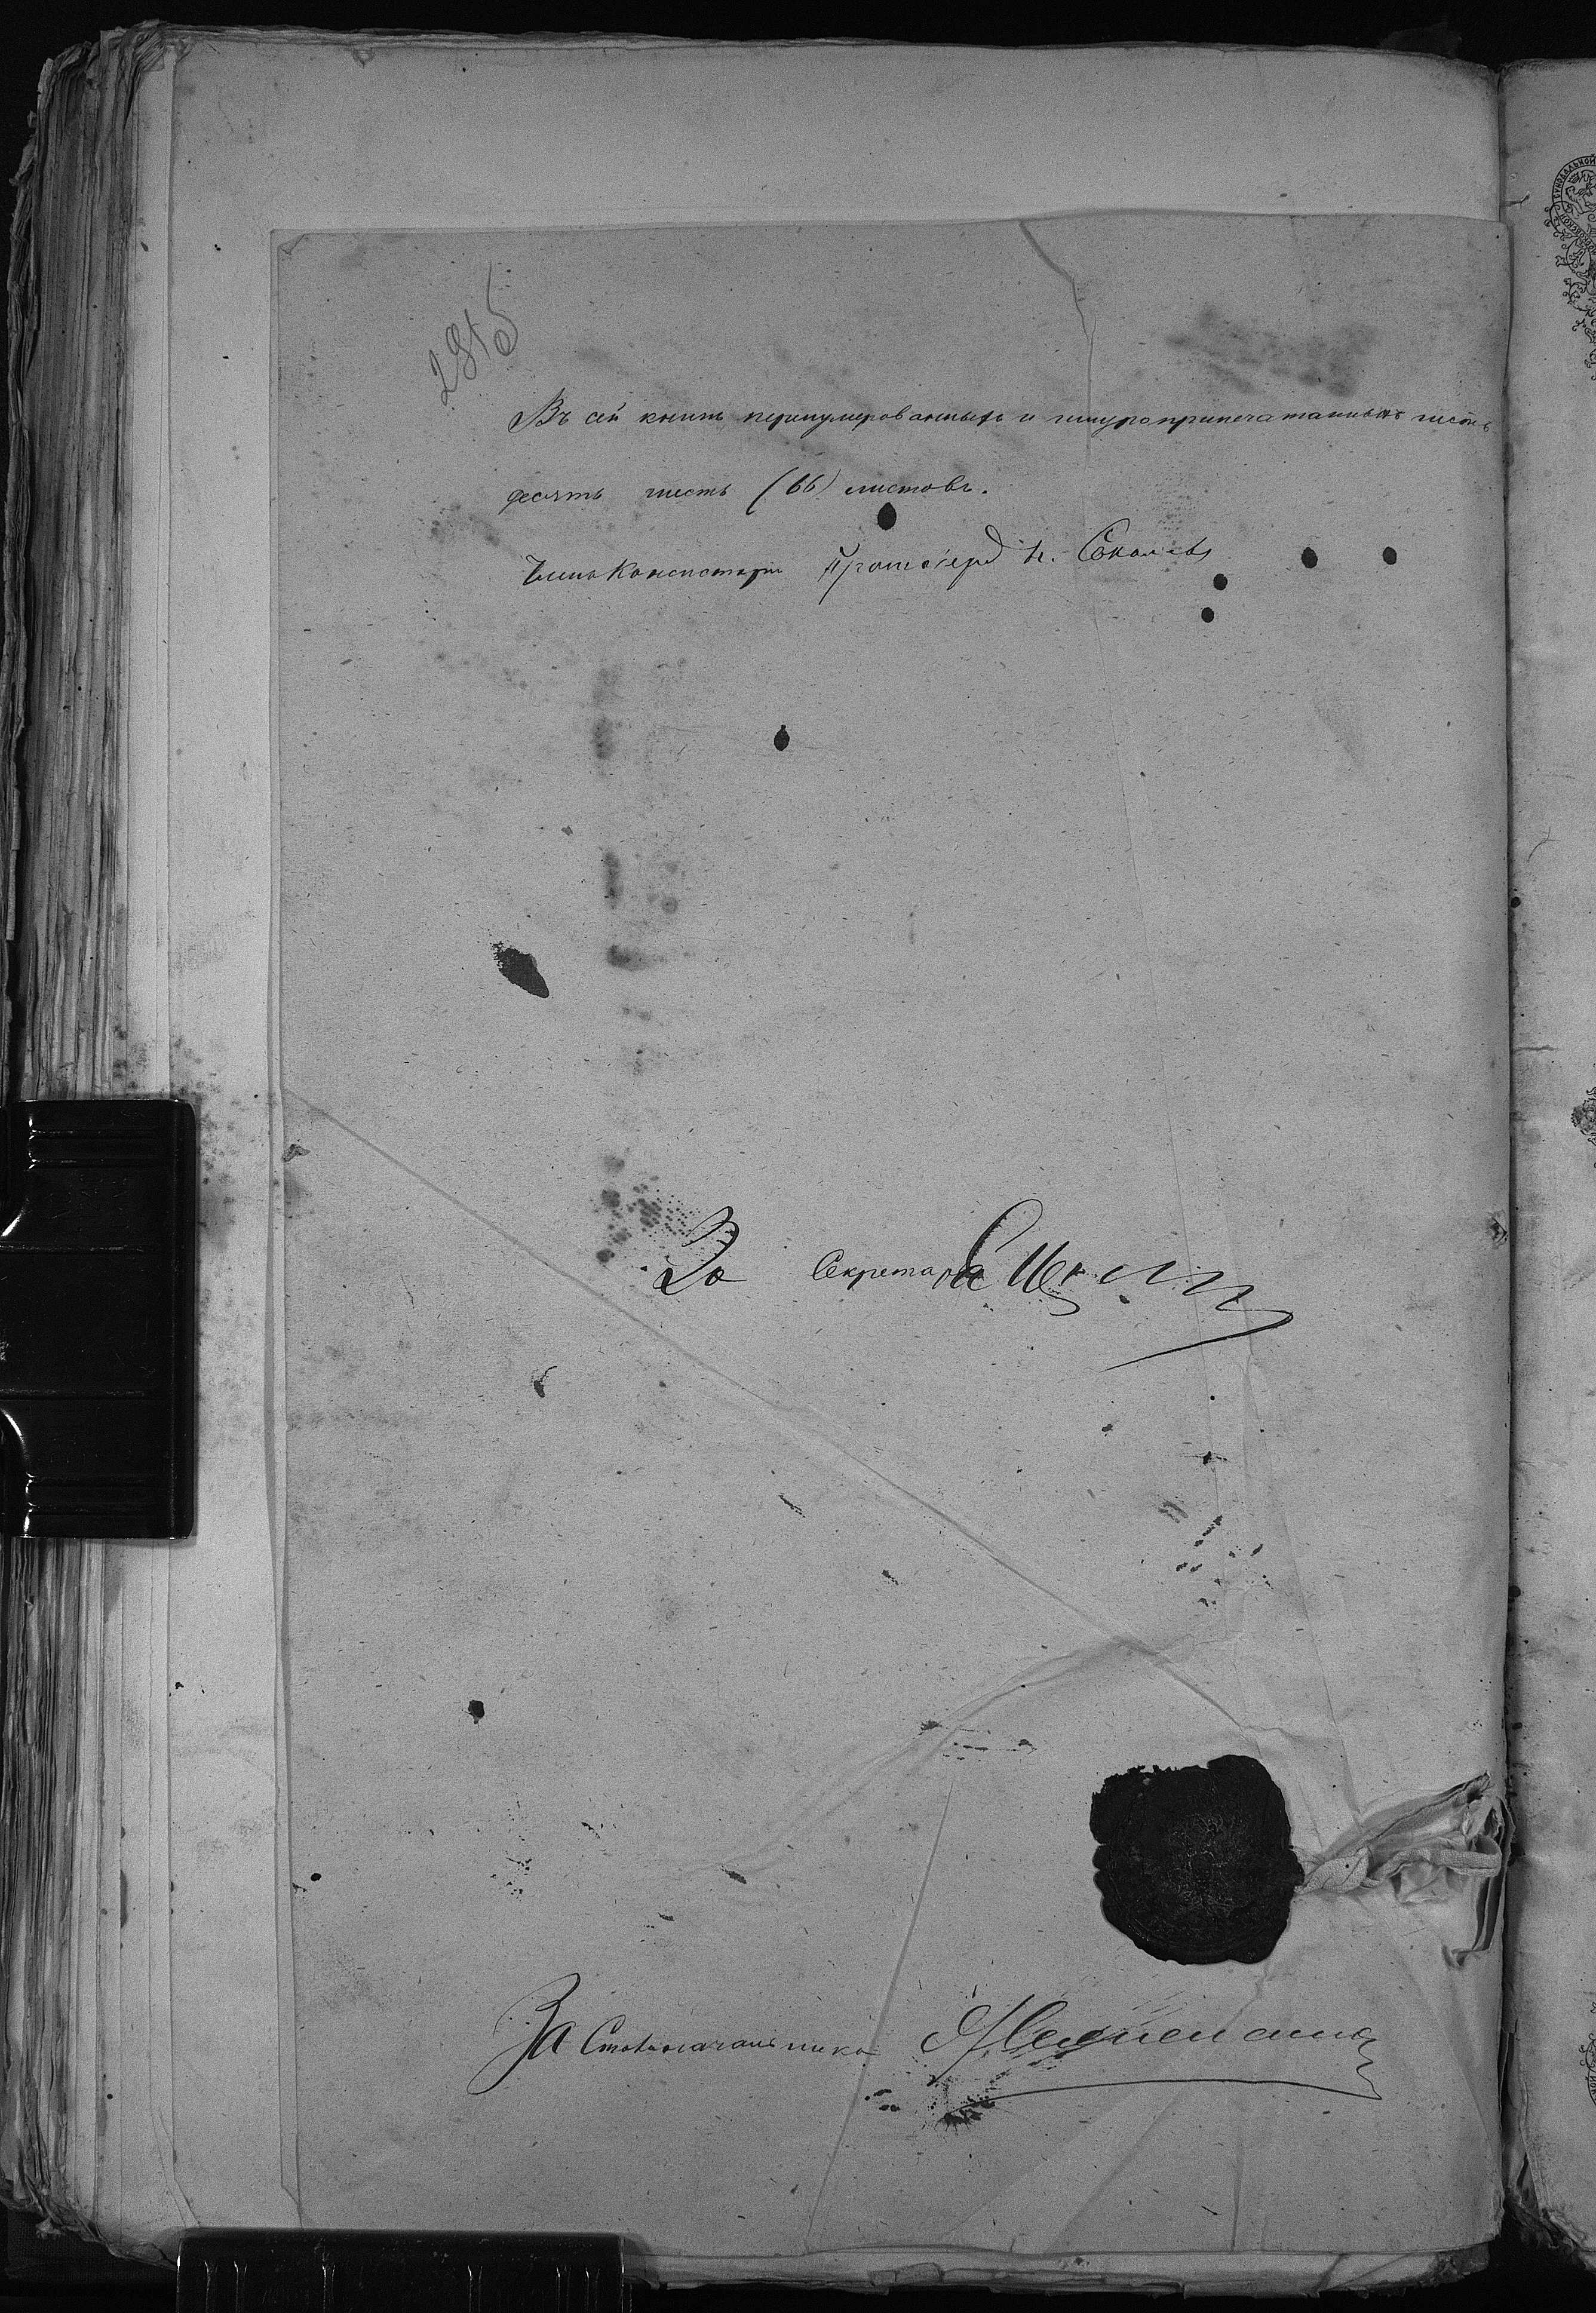 281б
Въ сей книгѣ перенумерованныхъ и шнуроприпечатанныхъ шесть
десять шесть (66) листовъ.
Членъ Консисторіи Протоіерей Н. Соколовъ
За Секретаря
За Столоначальника